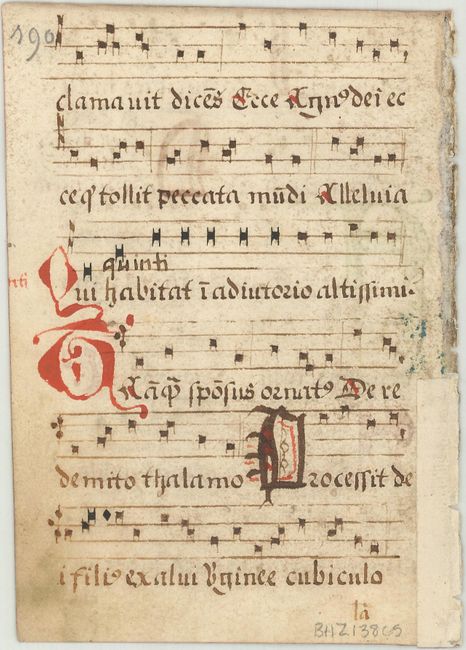 190
clamauit dicēs Ecce Agn9 dei ec
ce q tollit peccata mūdi Alleluia
quinti
Qui habitat ī adiutorio altissimi.
Tāq̄ spōsus ornat9 De re
demito thalamo Processit de
i fili9 exalui Vginee cubiculo
la
BHZ138cs